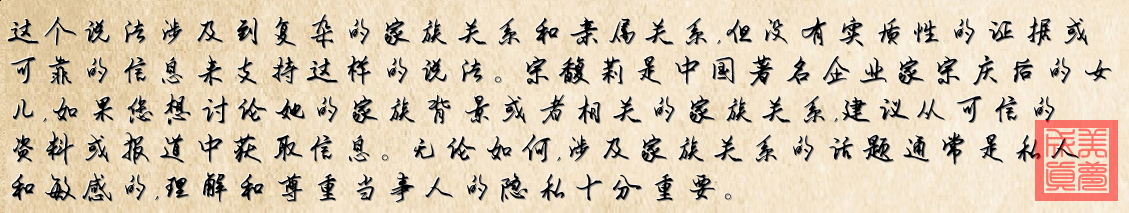 这个说法涉及到复杂的家族关系和亲属关系,但没有实质性的证据或
可靠的信息来支持这样的说法。宗馥莉是中国著名企业家宗庆后的女
儿,如果您想讨论她的家族背景或者相关的家族关系,建议从可信的
资料或报道中获取信息。无论如何,涉及家族关系的话题通常是私人
和敏感的,理解和尊重当事人的隐私十分重要。
美梦成真